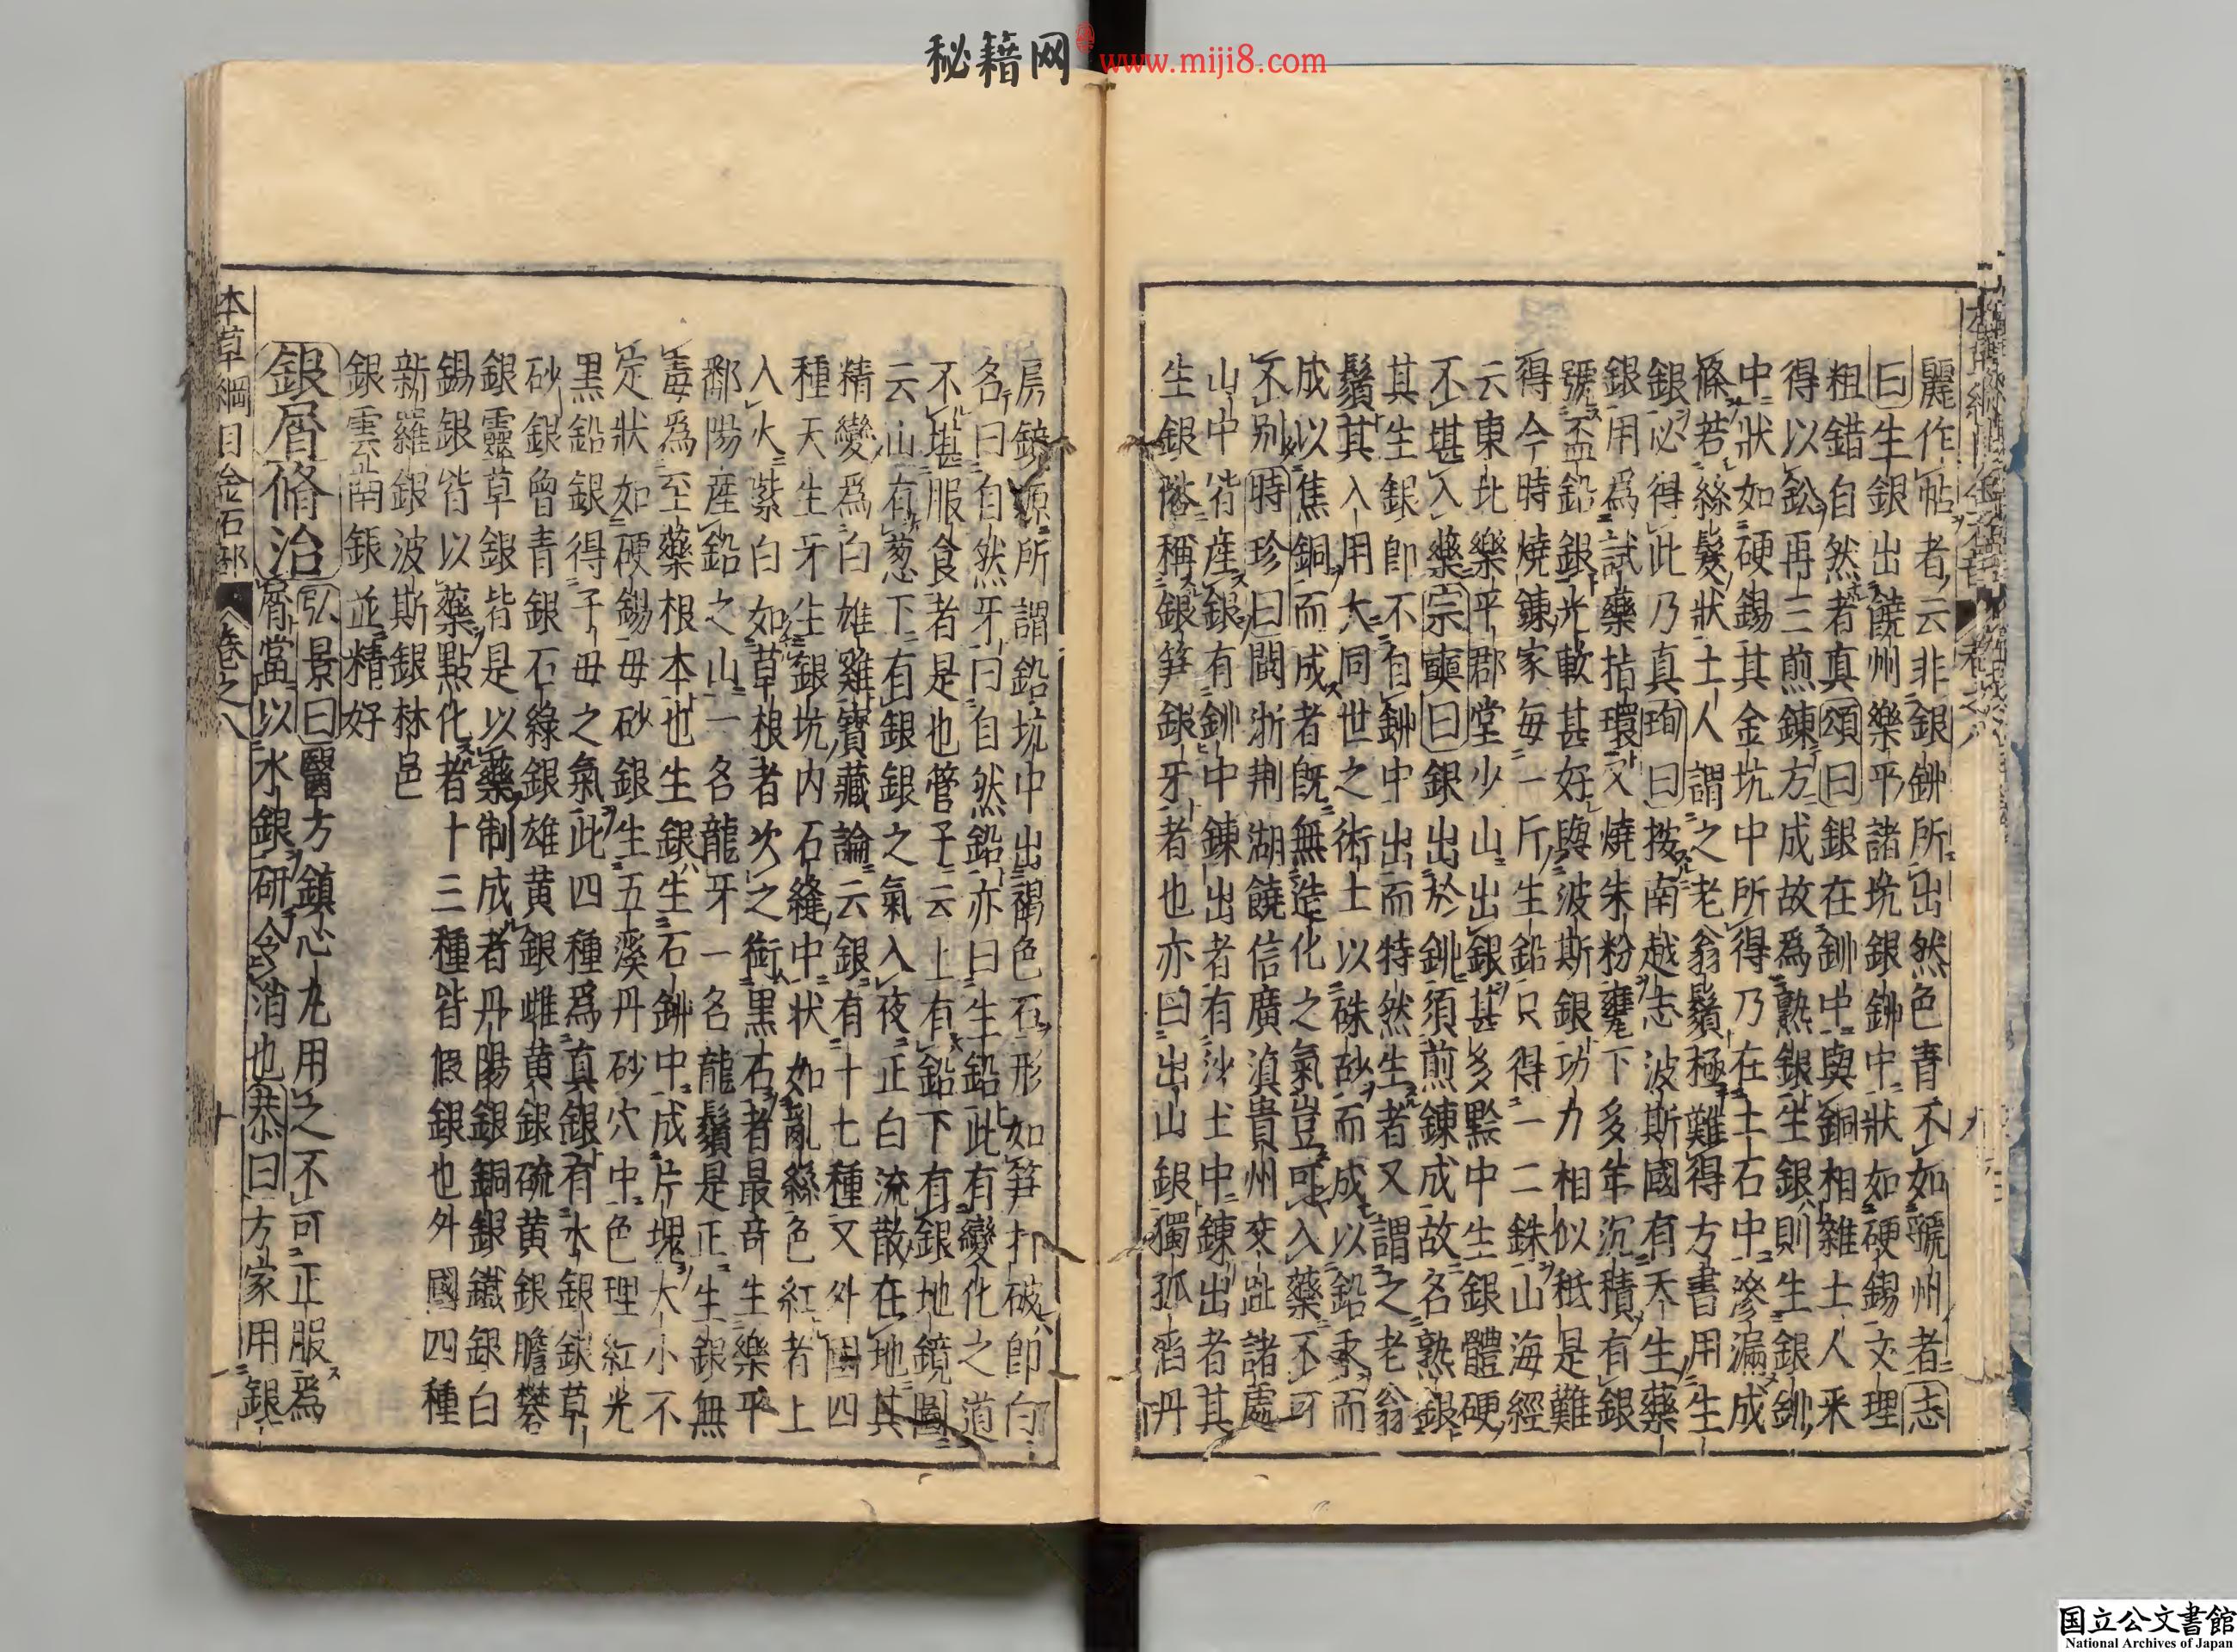 秘籍网 www.miji8.com
麗作帖者云非銀鉚所出然色青不如虢州者志
曰生銀出饒州樂平諸坑銀鉚中狀如硬錫文理
粗錯自然者真頌曰銀在鉚中與銅相雜土人采
得以鈆再三煎鍊方成故爲熟銀生銀則生銀鉚
中狀如硬錫其金坑中所得乃在土石中滲漏成
條若絲髮狀土人謂之老翁鬚極難得方書用生
銀必得此乃真珣曰按南越志波斯國有天生藥
銀用爲試藥指環又燒朱粉甕下多年沉積有銀
號盃鉛銀光軟甚好與波斯銀功力相似秖是難
得今時燒鍊家每一斤生鉛只得一二銖山海經
云東北樂平郡堂少山出銀甚多黔中生銀體硬
不堪入藥宗奭曰銀出於鉚須煎鍊成故名熟銀
其生銀卽不自鉚中出而特然生者又謂之老翁
鬚其入用大同世之術士以硃砂而成以鉛汞而
成以焦銅而成者旣無造化之氣豈可入藥不可
不别時珍曰閩浙荆湖饒信廣滇貴州交趾諸處
山中皆産銀有鉚中鍊出者有沙土中鍊出者其
生銀俗稱銀笋銀牙者也亦曰出山銀獨孤滔丹
房鏡源所謂鉛坑中出褐色石形如笋打破卽白
名曰自然牙曰自然鉛亦曰生鉛此有變化之道
不堪服食者是也管子云上有鉛下有銀地鏡圖
云山有葱下有銀銀之氣入夜正白流散在地其
精變爲白雄雞寶藏論云銀有十七種又外國四
種天生牙生銀坑内石縫中狀如亂絲色紅者上
入火紫白如草根者次之銜黑石者最奇生樂平
鄱陽産鉛之山一名龍牙一名龍鬚是正生銀無
毒爲至藥根本也生銀生石鉚中成片塊大小不
定狀如硬錫母砂銀生五溪丹砂穴中色理紅光
黑鉛銀得子母之氣此四種爲真銀有水銀銀草
砂銀曾青銀石綠銀雄黄銀雌黄銀硫黄銀膽礬
銀靈草銀皆是以藥制成者丹陽銀銅銀鐵銀白
錫銀皆以藥點化者十三種皆假銀也外國四種
新羅銀波斯銀林邑
銀雲南銀並精好
銀屑脩治弘景曰醫方鎮心丸用之不可正服爲
屑當以水銀研令消也恭曰方家用銀
本草綱目金石部 卷之八 十
国立公文書館
National Archives of Japan